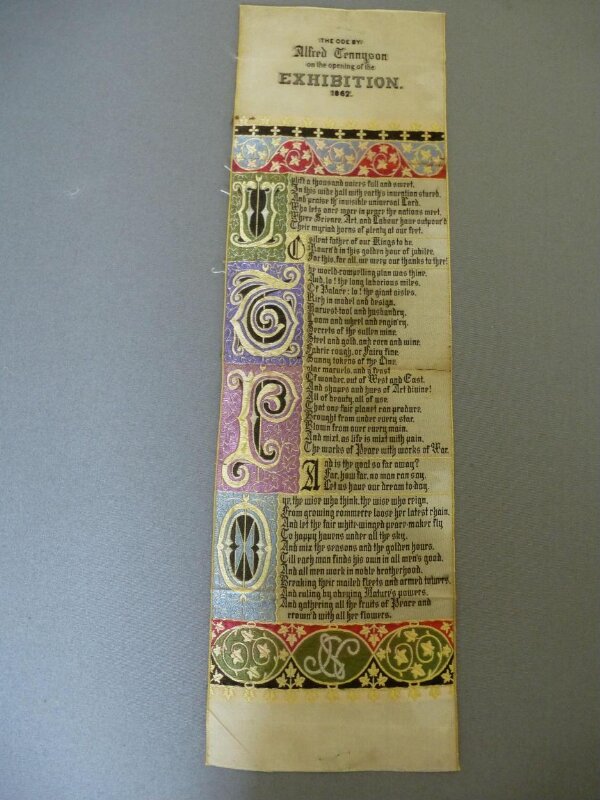 THE ODE BY
Alfred Tennyson
on the opening of the
EXHIBITION.
1862.
Uplift a thousand voices full and sweet,
In this wide hall with earth's invention stored,
And praise th' invisible universal Lord,
Who lets once more in peace the nations meet,
Where Science, Art, and Labour have outpour'd
Their myriad horns of plenty at our feet.
O silent father of our Kings to be,
Mourn'd in this golden hour of jubilee,
For this, for all, we weep our thanks to thee!
The world-compelling plan was thine,
And, lo! the long laborious miles
Of Palace; lo! the giant aisles,
Rich in model and design;
Harvest-tool and husbandry,
Loom and wheel and engin'ry,
Secrets of the sullen mine,
Steel and gold, and corn and wine,
Fabric rough, or Fairy fine,
Sunny tokens of the Line,
Polar marvels, and a feast
Of wonder, out of West and East,
And shapes and hues of Art divine!
All of beauty, all of use,
That one fair planet can produce,
Brought from under every star,
Blown from over every main,
And mixt, as life is mixt with pain,
The works of Peace with works of War.
And is the goal so far away?
Far, how far, no man can say,
Let us have our dream to-day.
O ye, the wise who think, the wise who reign,
From growing commerce loose her latest chain,
And let the fair white-winged peace-maker fly
To happy havens under all the sky,
And mix the seasons and the golden hours,
Till each man finds his own in all men's good,
And all men work in noble brotherhood,
Breaking their mailed fleets and armed towers,
And ruling by obeying Nature's powers,
And gathering all the fruits of Peace and
crown'd with all her flowers.